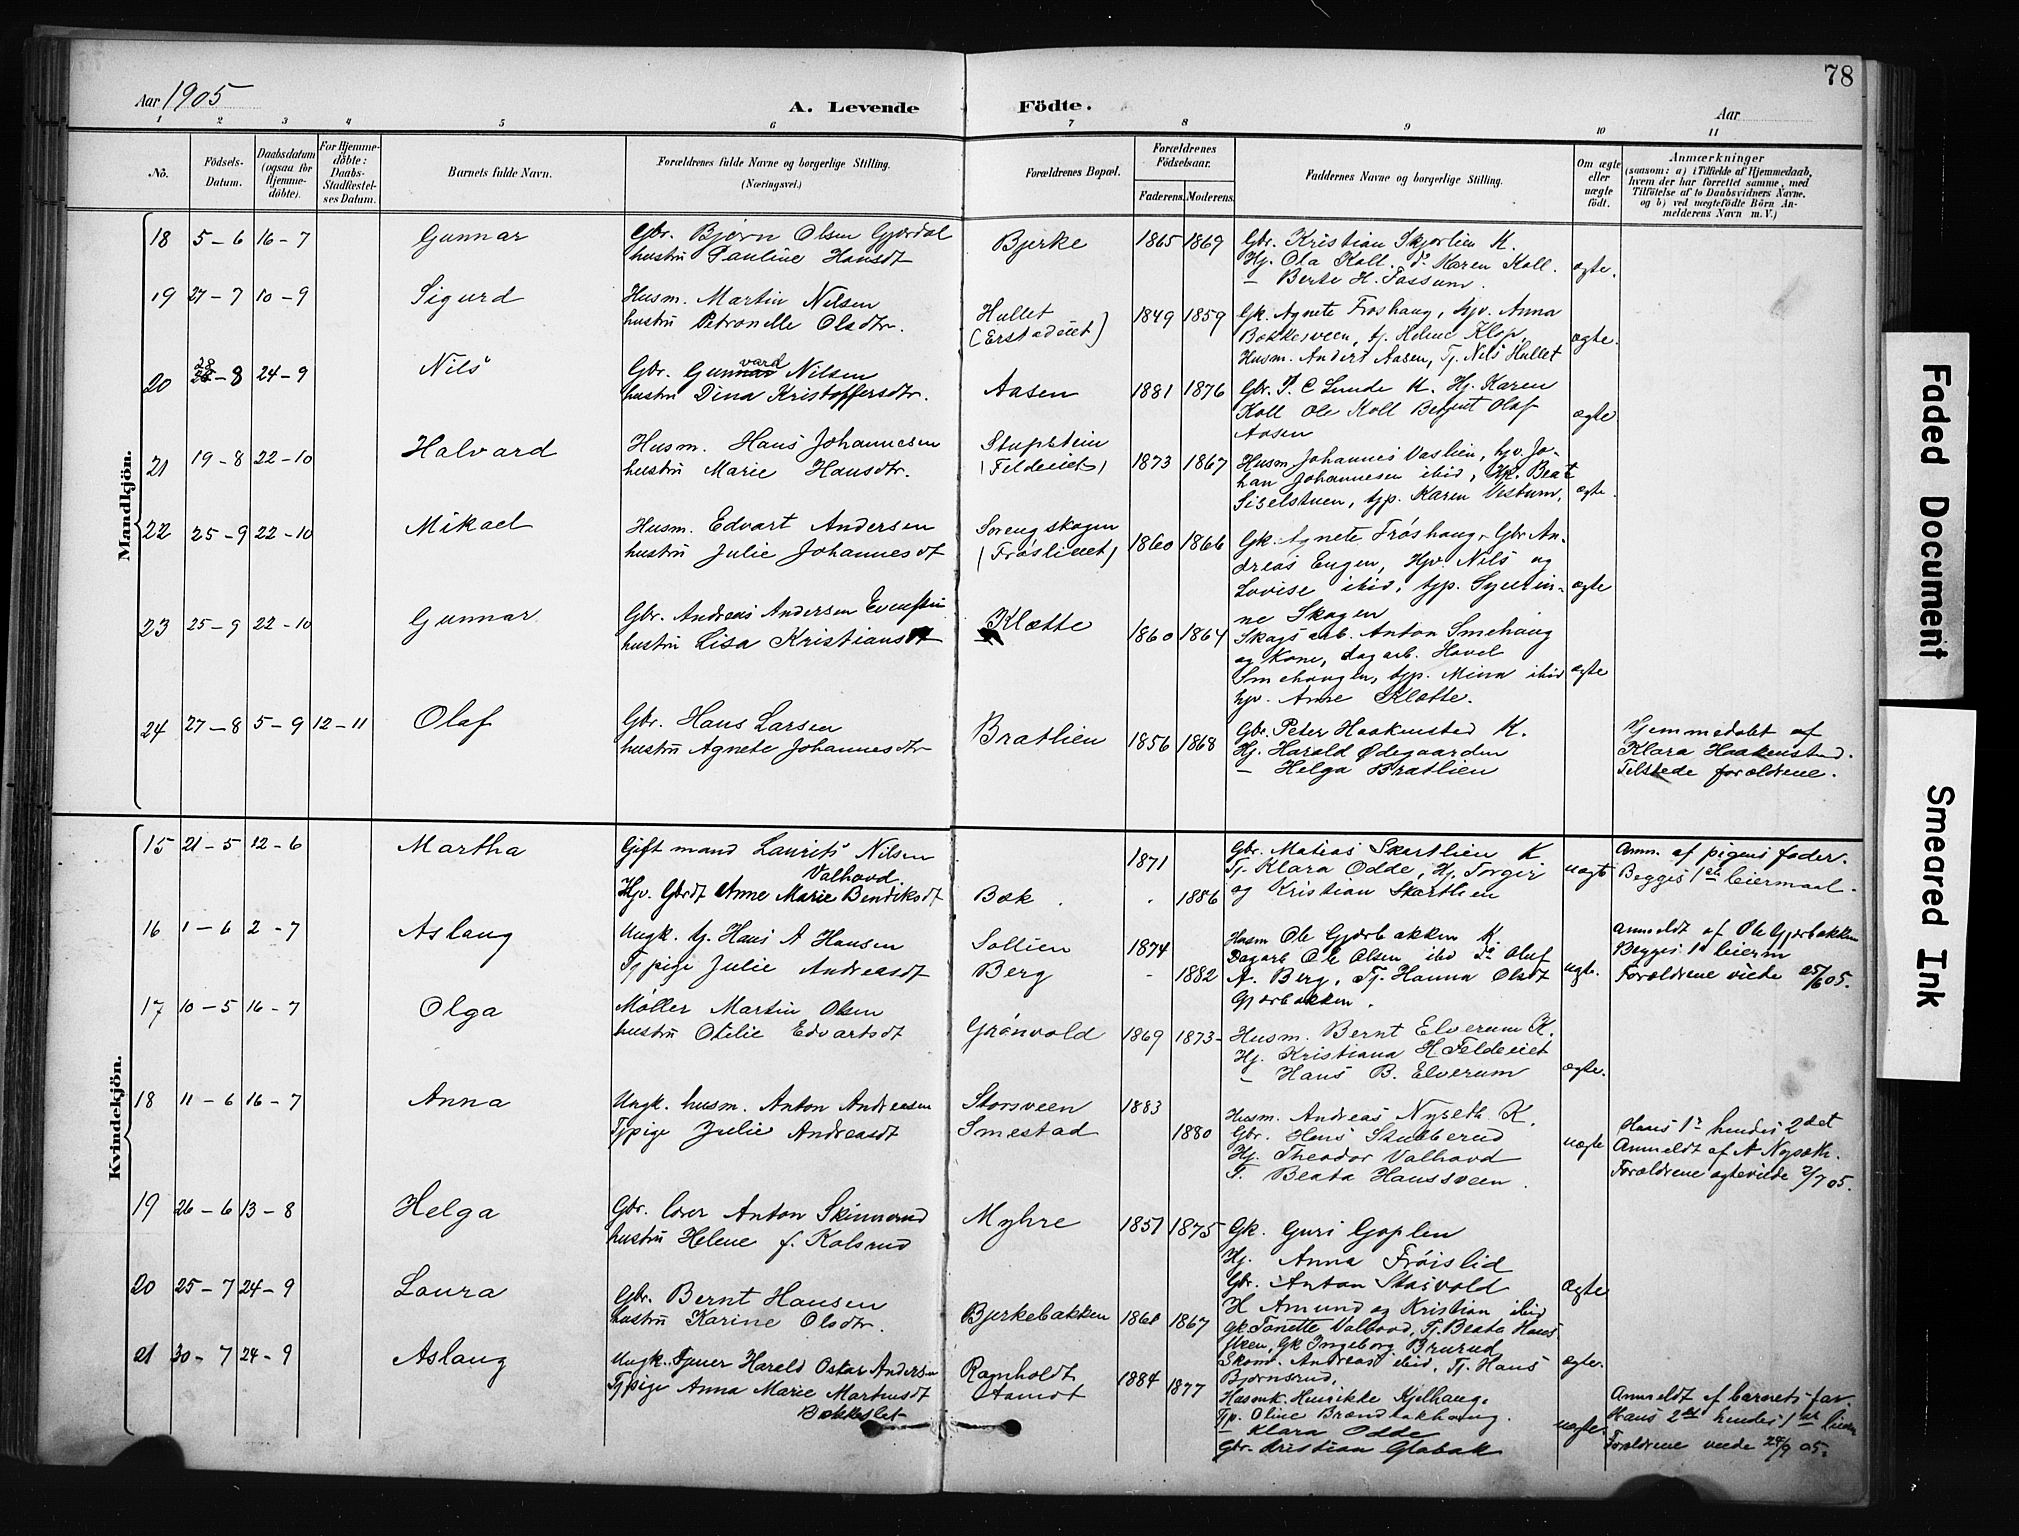 78
Aar 1905
A. Levende Födte.
Aar
1 2 3 4 5 6 7 8 9 10 11
No.
Födsels-Datum.
Daabsdatum (ogsaa for Hjemmedöbte).
For Hjemmedöbte: Daabs-Stadfestelses Datum.
Barnets fulde Navn.
Forældrenes fulde Navne og borgerlige Stilling.
(Næringsvei.)
Forældrenes Bopæl.
Forældrenes Födselsaar.
Faderens. Moderens.
Faddernes Navne og borgerlige Stilling.
Om ægte eller uægte födt.
Anmærkninger
(saasom: a) i Tilfælde af Hjemmedaab,
hvem der har forrettet samme, med
Tilföielse af to Daabsvidners Navne.
og b) ved uægtefödte Börn Anmelderens Navn m. V.)
Mandkjön.
18 5-6 16-7 Gunnar Gbr. Bjørn Olsen Gjørdal Bjerke 1865 1869 Gbr. Kristian Skjørlien K.
hustru Pauline Hansdt Hj. Ola Koll. Do Karen Koll. ægte.
— Berte H. Fossum.
19 27-7 10-9 Sigurd Husm. Martin Nilsen Hullet 1849 1859 Gk. Agnete Froshaug, hjv. Anna
hustru Petronelle Olsdtr. (Erstadeiet) Bakkesveen, tj. Helene Klop, ægte.
Husm. Andert Aasen, Tj. Nils Hullet
20 28-8 24-9 Nils Gbr. Gunvard Nilsen Aasen 1881 1876 Gbr. P. C Lunde K. Hj. Karen
hustru Dina Kristoffersdtr. Koll Ole Koll Olaf ægte
Aasen
21 19-8 22-10 Halvard Husm. Hans Johannesen Stupstein 1873 1867 Husm Johannes Vaslien, hjv. Jo-
hustru Marie Hansdtr. (Feldeiet) han Johannesen ibid, Beat
Siselstuen, tjp. Karen Vestum, ægte.
22 25-9 22-10 Mikael Husm. Edvart Andersen Sorengskogen 1860 1866 Gk. Agnete Frøshaug, Gbr An-
hustru Julie Johannesdt (Frøslieiet) dreas Engen, Hjv. Nils og
Lovise ibid, tjp. ægte
ne Skogen
23 25-9 22-10 Gunnar Gbr. Andreas Andersen Klætte 1860 1864 Skogsarb. Anton Smehaug
hustru Lisa Kristiansdt og Kone, dagarb. Hovel
Smehaugen, tjp. Mina ibid ægte
hjv. Anne Klætte.
24 27-8 5-9 12-11 Olaf Gbr. Hans Larsen Bratlien 1856 1868 Gbr. Peter Haakenstad K. Hjemmedøbt af
hustru Agnete Johannesdtr Hj. Harald Ødegaarden Klara Haakenstad.
— Helga Bratlien Tilstede forældrene.
Kvindekjön.
15 21-5 12-6 Martha Gift mand Laurits Nilsen 1871 Gbr. Matias Skartlien K uægte Anm. af pigens fader.
Valhovd. Tj. Klara Odde, Hj. Torgir Begges 1ste leiermaal.
Hjv. Gbrdt Anne Marie Bendiksdt Bæk . 1886 og Kristian Skartlien
16 1-6 2-7 Aslaug Ungk. tj. Hans A Hansen Sollien 1874 Husm Ole Gjørbakken K. Anmeldt af Ole Gjørbakken
Tjpige Julie Andreasdt Berg - 1882 Dagarb Ole Olsen ibid Do Oluf Begges 1ste leierm
A. Berg, Tj. Hanna Olsdt uægte. Forældrene viede 25/6 05.
Gjørbakken.
17 10-5 16-7 Olga Møller Martin Olsen Grønvold 1869 1873 Husm. Bernt Elverum K.
hustru Otelie Edvartsdt Hj. Kristiana H Feldeiet
— Hans B. Elverum ægte.
18 11-6 16-7 Anna Ungk. husm. Anton Andreasen Storsveen 1883 Husm. Andreas Nyseth K. Hans 1ste hendes 2det
Tjpige Julie Andreasdt Smestad 1880 Gbr. Hans Skubberud uægte Anmeldt af A Nyseth.
Hj. Theodor Valhovd Forældrene egteviede 2/7 05.
T. Beata Haussveen.
19 26-6 13-8 Helga Gbr. lærer Anton Skinnerud Myhre 1851 1875 Gk. Guri Goplen
hustru Helene f. Kolsrud Hj. Anna Frøislid
Gbr. Anton Staivold Ægte
20 25-7 24-9 Laura Gbr. Bernt Hansen Bjerkebakken 1861 1867 H Amund og Kristian ibid
hustru Karine Olsdtr. Gk. Tonette Valhovd, Tj. Beate Haus
Gk Ingeborg Bruvrud ægte.
21 30-7 24-9 Aslaug Ungk. Tjener Harald Oskar Andersen Ramholdt 1884 1877 Andreas ibid, Tj. Hans
Tjpige Anna Marie Martinsdt Aamot Bjørnsrud,
Bakkeslet Henrikke Kjelhaug. Anmeldt af barnets far.
Tjp. Oline Brændbakhaug. uægte Hans 2det hendes 1ste leierm
— Klara Odde Forældrene viede 24/9 05.
Gbr. Kristian Glæbak
Faded Document
Smeared Ink